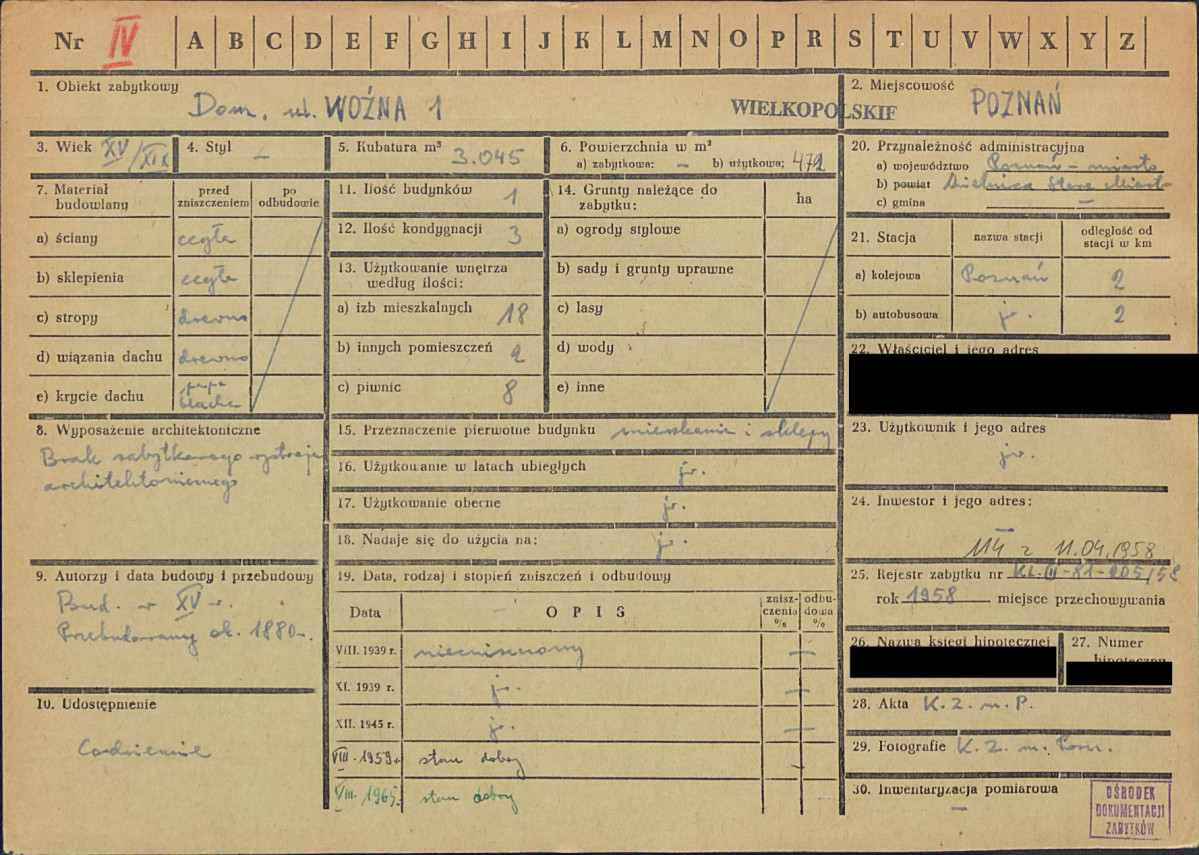 Nr IV A B C D E F G H I J K L M N O P R S T U V W X Y Z
1. Obiekt zabytkowy
Dom, ul. WOŹNA 1
WIELKOPOLSKIE
2. Miejscowość POZNAŃ
3. Wiek XV/XIX
4. Styl –
5. Kubatura m³ 3.045
6. Powierzchnia w m²
a) zabytkowa: – b) użytkowa; 472
7. Materiał budowlany
przed zniszczeniem
po odbudowie
a) ściany cegła
b) sklepienia cegła
c) stropy drewno
d) wiązania dachu drewno
e) krycie dachu papa blacha
8. Wyposażenie architektoniczne
Brak zabytkowego wystroju
architektonicznego
9. Autorzy i data budowy i przebudowy
Bud. w XV w.
Przebudowany ok. 1880-.
10. Udostępnienie
Codziennie
11. Ilość budynków 1
12. Ilość kondygnacji 3
13. Użytkowanie wnętrza
według ilości:
a) izb mieszkalnych 18
b) innych pomieszczeń 2
c) piwnic 8
14. Grunty należące do
zabytku:
ha
a) ogrody stylowe
b) sady i grunty uprawne
c) lasy
d) wody
e) inne
15. Przeznaczenie pierwotne budynku mieszkanie i sklepy
16. Użytkowanie w latach ubiegłych jw.
17. Użytkowanie obecne jw.
18. Nadaje się do użycia na: jw.
19. Data, rodzaj i stopień zniszczeń i odbudowy
Data OPIS zniszczenia % odbudowa %
VIII. 1939 r. niezniszczony –
XI. 1939 r. jw. –
XII. 1945 r. jw. –
VIII. 1959 r. stan dobry
VIII. 1965. stan dobry
20. Przynależność administracyjna
a) województwo Poznań – miasto
b) powiat Dzielnica Stare Miasto
c) gmina –
21. Stacja
nazwa stacji
odległość od
stacji w km
a) kolejowa Poznań 2
b) autobusowa jw. 2
22. Właściciel i jego adres
23. Użytkownik i jego adres
jw.
24. Inwestor i jego adres:
–
114 z 11.04.1958
25. Rejestr zabytku nr KL.III-81-205/58
rok 1958 miejsce przechowywania
26. Nazwa księgi hipotecznej
27. Numer
hipoteczny
28. Akta K. Z. m. P.
29. Fotografie K. Z. m. Pozn.
30. Inwentaryzacja pomiarowa
–
OŚRODEK
DOKUMENTACJI
ZABYTKÓW